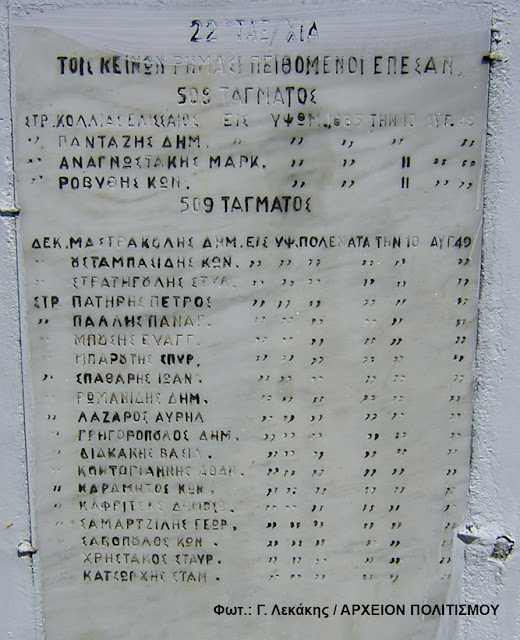 22 ΤΑΞ/ΧΙΑ
ΤΟΙΣ ΚΕΙΝΩΝ ΡΗΜΑΣΙ ΠΕΙΘΟΜΕΝΟΙ ΕΠΕΣΑΝ.
509 ΤΑΓΜΑΤΟΣ
ΣΤΡ. ΚΟΛΛΙΑΣ ΕΛΙΣΣΑΙΟΣ ΕΙΣ ΥΨΩΜ. ΤΗΝ 10 ΑΥΓ. 49
" ΠΑΝΤΑΖΗΣ ΔΗΜ. " " " " " "
" ΑΝΑΓΝΩΣΤΑΚΗΣ ΜΑΡΚ. " " " 11 " "
" ΡΟΒΥΘΗΣ ΚΩΝ. " " 11 " "
509 ΤΑΓΜΑΤΟΣ
ΔΕΚ. ΜΑΣΤΡΑΚΟΛΗΣ ΔΗΜ. ΕΙΣ ΥΨ. ΠΟΛΕΝΑΤΑ ΤΗΝ 10 ΑΥΓ 49
" ΟΣΤΑΜΠΑΣΙΔΗΣ ΚΩΝ. " " " " " "
" ΣΤΡΑΤΗΓΟΛΗΣ ΣΤΥΛ. " " " " " "
ΣΤΡ. ΠΑΤΗΡΗΣ ΠΕΤΡΟΣ " " " " " "
" ΠΑΛΛΗΣ ΠΑΝΑΓ. " " " " " "
" ΕΥΑΓΓ. " " " " " "
" ΜΠΑΡΟΤΗΣ ΣΠΥΡ. " " " " " "
" ΣΠΑΘΑΡΗΣ ΙΩΑΝ. " " " " "
" ΡΩΜΑΝΙΔΗΣ ΔΗΜ. " " " " " "
" ΛΑΖΑΡΟΣ ΑΥΡΗΛ " " " " " "
" ΓΡΗΓΟΡΟΠΟΛΟΣ ΔΗΜ. " " " " " "
" ΔΙΑΚΑΚΗΣ ΒΑΣΙΛ. " " " " " "
" ΚΟΝΤΟΓΙΑΝΝΗΣ ΑΘΑΝ. " " " " " "
" ΚΑΡΑΜΗΤΟΣ ΚΩΝ. " " " " " "
" ΚΑΦΡΙΤΣΑΣ " " " " " "
" ΣΑΜΑΡΤΖΙΛΗΣ ΓΕΩΡ. " " " " " "
" ΣΑΒΟΠΟΛΟΣ ΚΩΝ. " " " " " "
ΧΡΗΣΤΑΚΟΣ ΣΤΑΥΡ. " " " " " "
" ΚΑΤΣΩΡΧΗΣ ΣΤΑΜ. " " " " " "
Φωτ.: Γ. Λεκάκης / ΑΡΧΕΙΟΝ ΠΟΛΙΤΙΣΜΟΥ